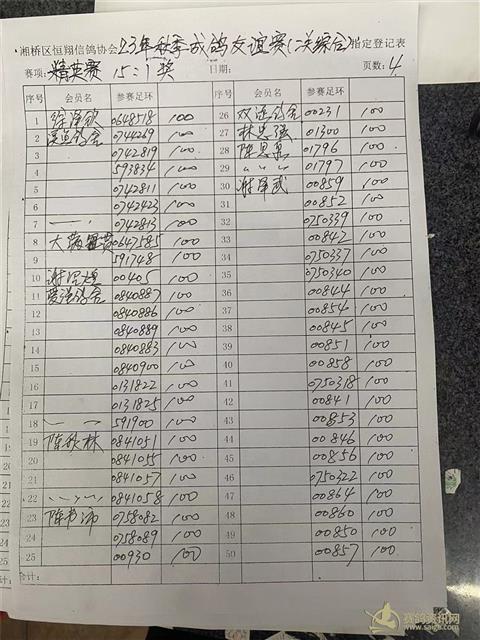 湘桥区恒翔信鸽协会23年秋季成鸽友谊赛(二关综合)指定登记表
赛项: 精英赛 15:1奖 日期: 页数: 4
序号 会员名 参赛足环 序号 会员名 参赛足环
1 徐泽钦 0648518 100 26 双运鸽舍 00231 100
2 0744269 100 27 林忠强 01300 100
3 0742819 100 28 陈思 01796 100
4 593834 100 29 〃 〃 01797 100
5 0742811 100 30 谢泽武 00859 100
6 0742423 100 31 00852 100
7 0742813 100 32 0750339 100
8 0647585 100 33 00842 100
9 591748 100 34 0750337 100
10 00405 100 35 0750340 100
11 0840887 100 36 00844 100
12 0840886 100 37 00854 100
13 0840889 100 38 00845 100
14 0840883 100 39 00851 100
15 0840900 100 40 00858 100
16 0131822 100 41 0750318 100
17 0131825 100 42 00841 100
18 591900 100 43 00853 100
19 陈秋林 0841051 100 44 00846 100
20 0841055 100 45 00856 100
21 0841057 100 46 0750322 100
22 0841058 100 47 00864 100
23 0758082 100 48 00860 100
24 0758089 100 49 00850 100
25 00930 100 50 00857 100
合计:
赛鸽资讯网
www.saige.com